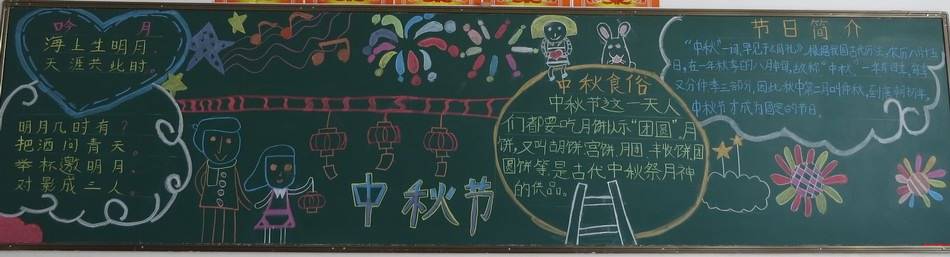 吟 月
海上生明月，
天涯共此时。
明月几时有？
把酒问青天。
举杯邀明月，
对影成三人。
中秋节
中秋食俗
中秋节这一天人
们都要吃月饼以示“团圆”，月
饼，又叫胡饼、宫饼、月团、丰收饼、团
圆饼等，是古代中秋祭月神
的供品。
节日简介
“中秋”一词，早见于《周礼》，根据我国古代历法，农历八月十五
日，在一年秋季的八月中旬，故称“中秋”。一年有四季，每季
又分仲季三部分，因此秋中第二月叫仲秋，到唐朝初年，
中秋节才成为固定的节日。